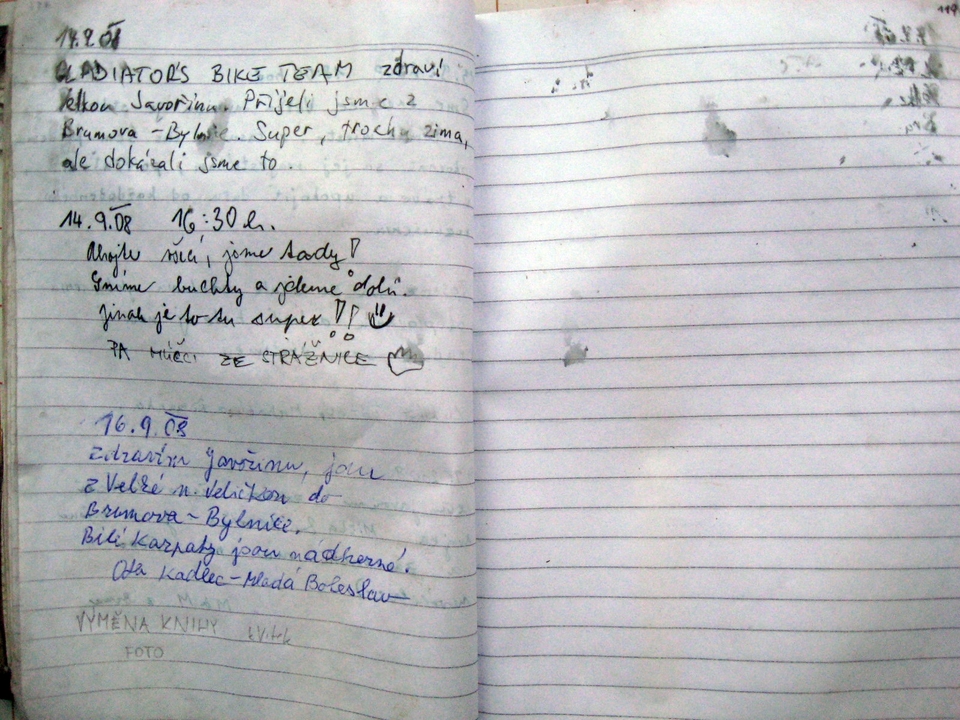 119
14.9.08
GLADIATORS BIKE TEAM zdraví
Velkou Javořinu. Přijeli jsme z
Brumova - Bylnice. Super, trochu zima,
ale dokázali jsme to.
14.9.08 16:30 h.
Ahojte, jsme tady!
Sníme buchty a jdeme dolů.
Jinak je to tu super!!
PA ZE STRÁŽNICE
16.9.08
Zdravím Javořinu, jdu
z Velké n. Veličkou do
Brumova - Bylnice.
Bílé Karpaty jsou nádherné.
Ota Kadlec - Mladá Boleslav
VÝMĚNA KNIHY
FOTO